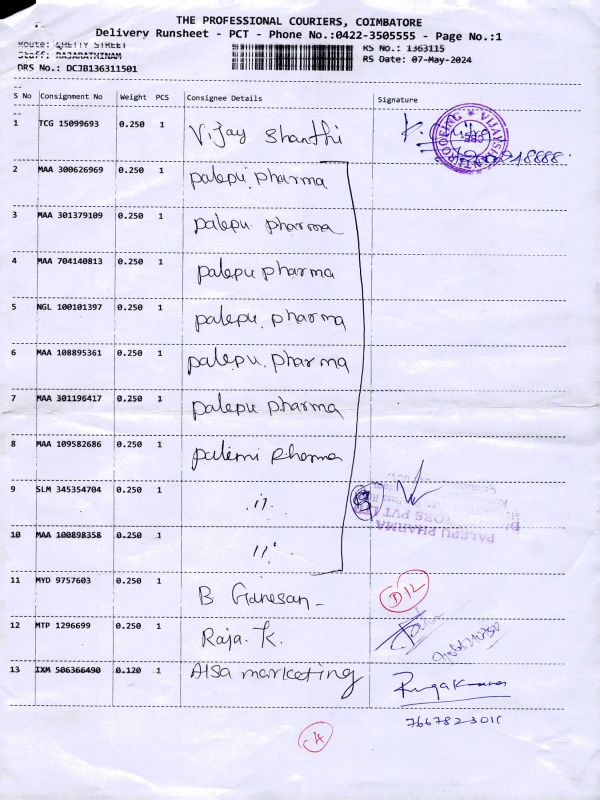 THE PROFESSIONAL COURIERS, COIMBATORE
Delivery Runsheet - PCT - Phone No.:0422-3505555 - Page No.:1
Route: GHETTY STREET
Staff: RAJARATHINAM
DRS No.: DCJB136311501
RS No.: 1363115
RS Date: 07-May-2024
S No Consignment No Weight PCS Consignee Details Signature
1 TCG 15099693 0.250 1 Vijay Shanthi
2 MAA 300626969 0.250 1 palepu pharma
3 MAA 301379109 0.250 1 palepu pharma
4 MAA 704140813 0.250 1 palepu pharma
5 NGL 100101397 0.250 1 palepu. pharma
6 MAA 108895361 0.250 1 palepu. pharma
7 MAA 301196417 0.250 1 palepu pharma
8 MAA 109582686 0.250 1 palemi pharma
9 SLM 345354704 0.250 1 .11.
10 MAA 100898358 0.250 1 11
PALEPU PHARMA
11 MYD 9757603 0.250 1 B Ganesan - D/L
12 MTP 1296699 0.250 1 Raja. K.
13 IXM 506366490 0.120 1 Alsa marketing
7667823011
4